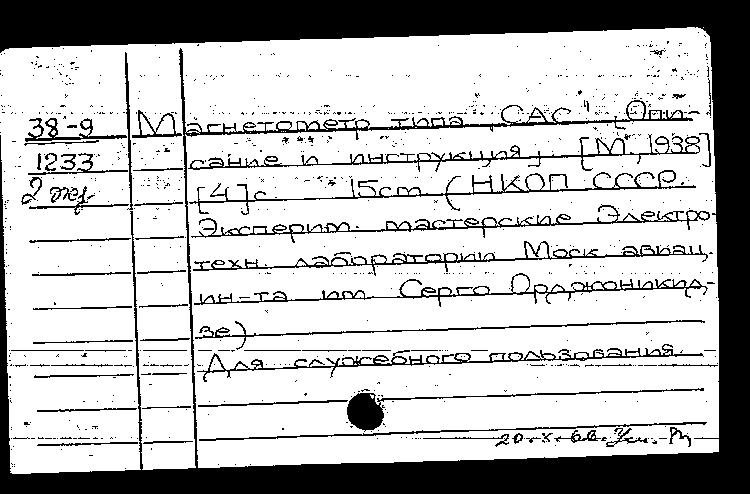 38-9 Магнетометр типа „САС". [Опи-
1233 сание и инструкция]. [М., 1938]
2 экз. [4] с. 15 cm (НКОП СССР.
Эксперим. мастерские Электро-
техн. лаборатории Моск. авиац.
ин-та им. Серго Орджоникид-
зе).
Для служебного пользования.
20.X.